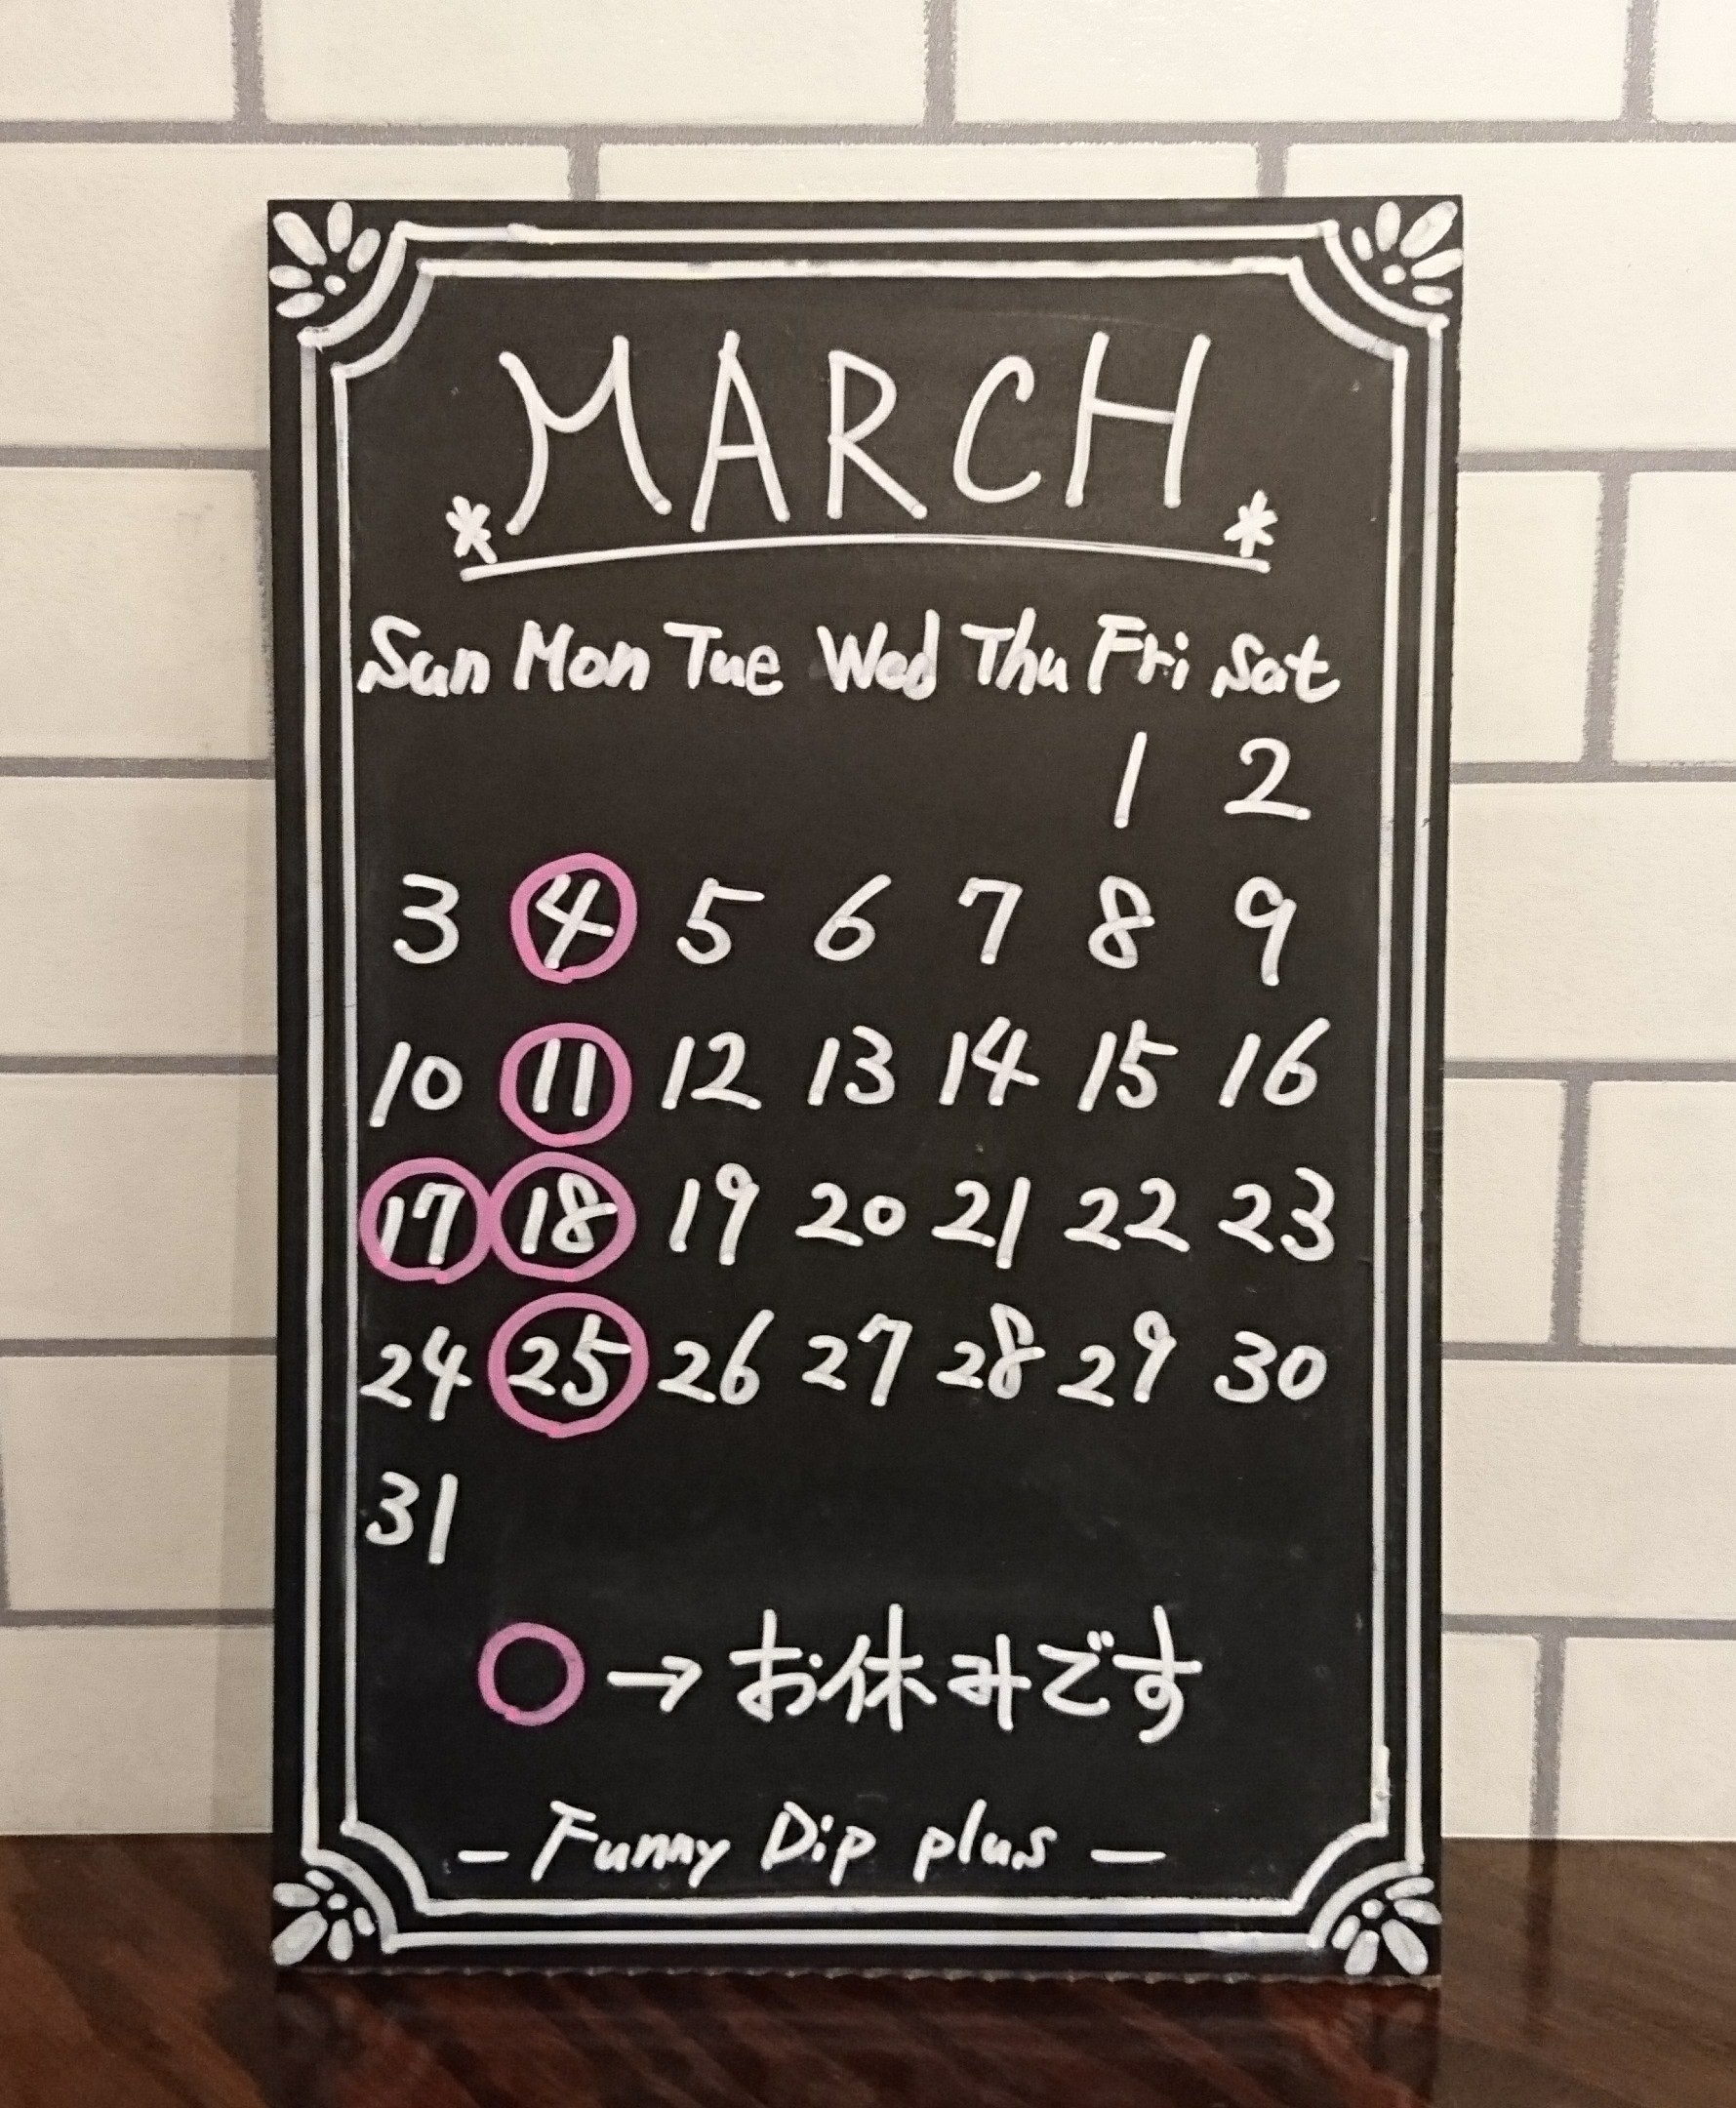 MARCH
Sun Mon Tue Wed Thu Fri Sat
1 2
3 4 5 6 7 8 9
10 11 12 13 14 15 16
17 18 19 20 21 22 23
24 25 26 27 28 29 30
31
○→お休みです
- Funny Dip plus -